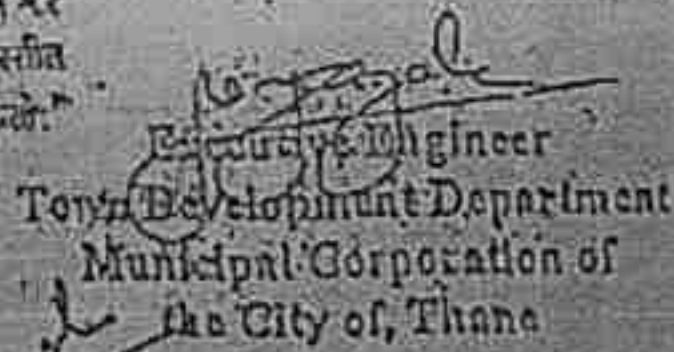 Executive Engineer
Town Development Department
Municipal Corporation of
the City of, Thane